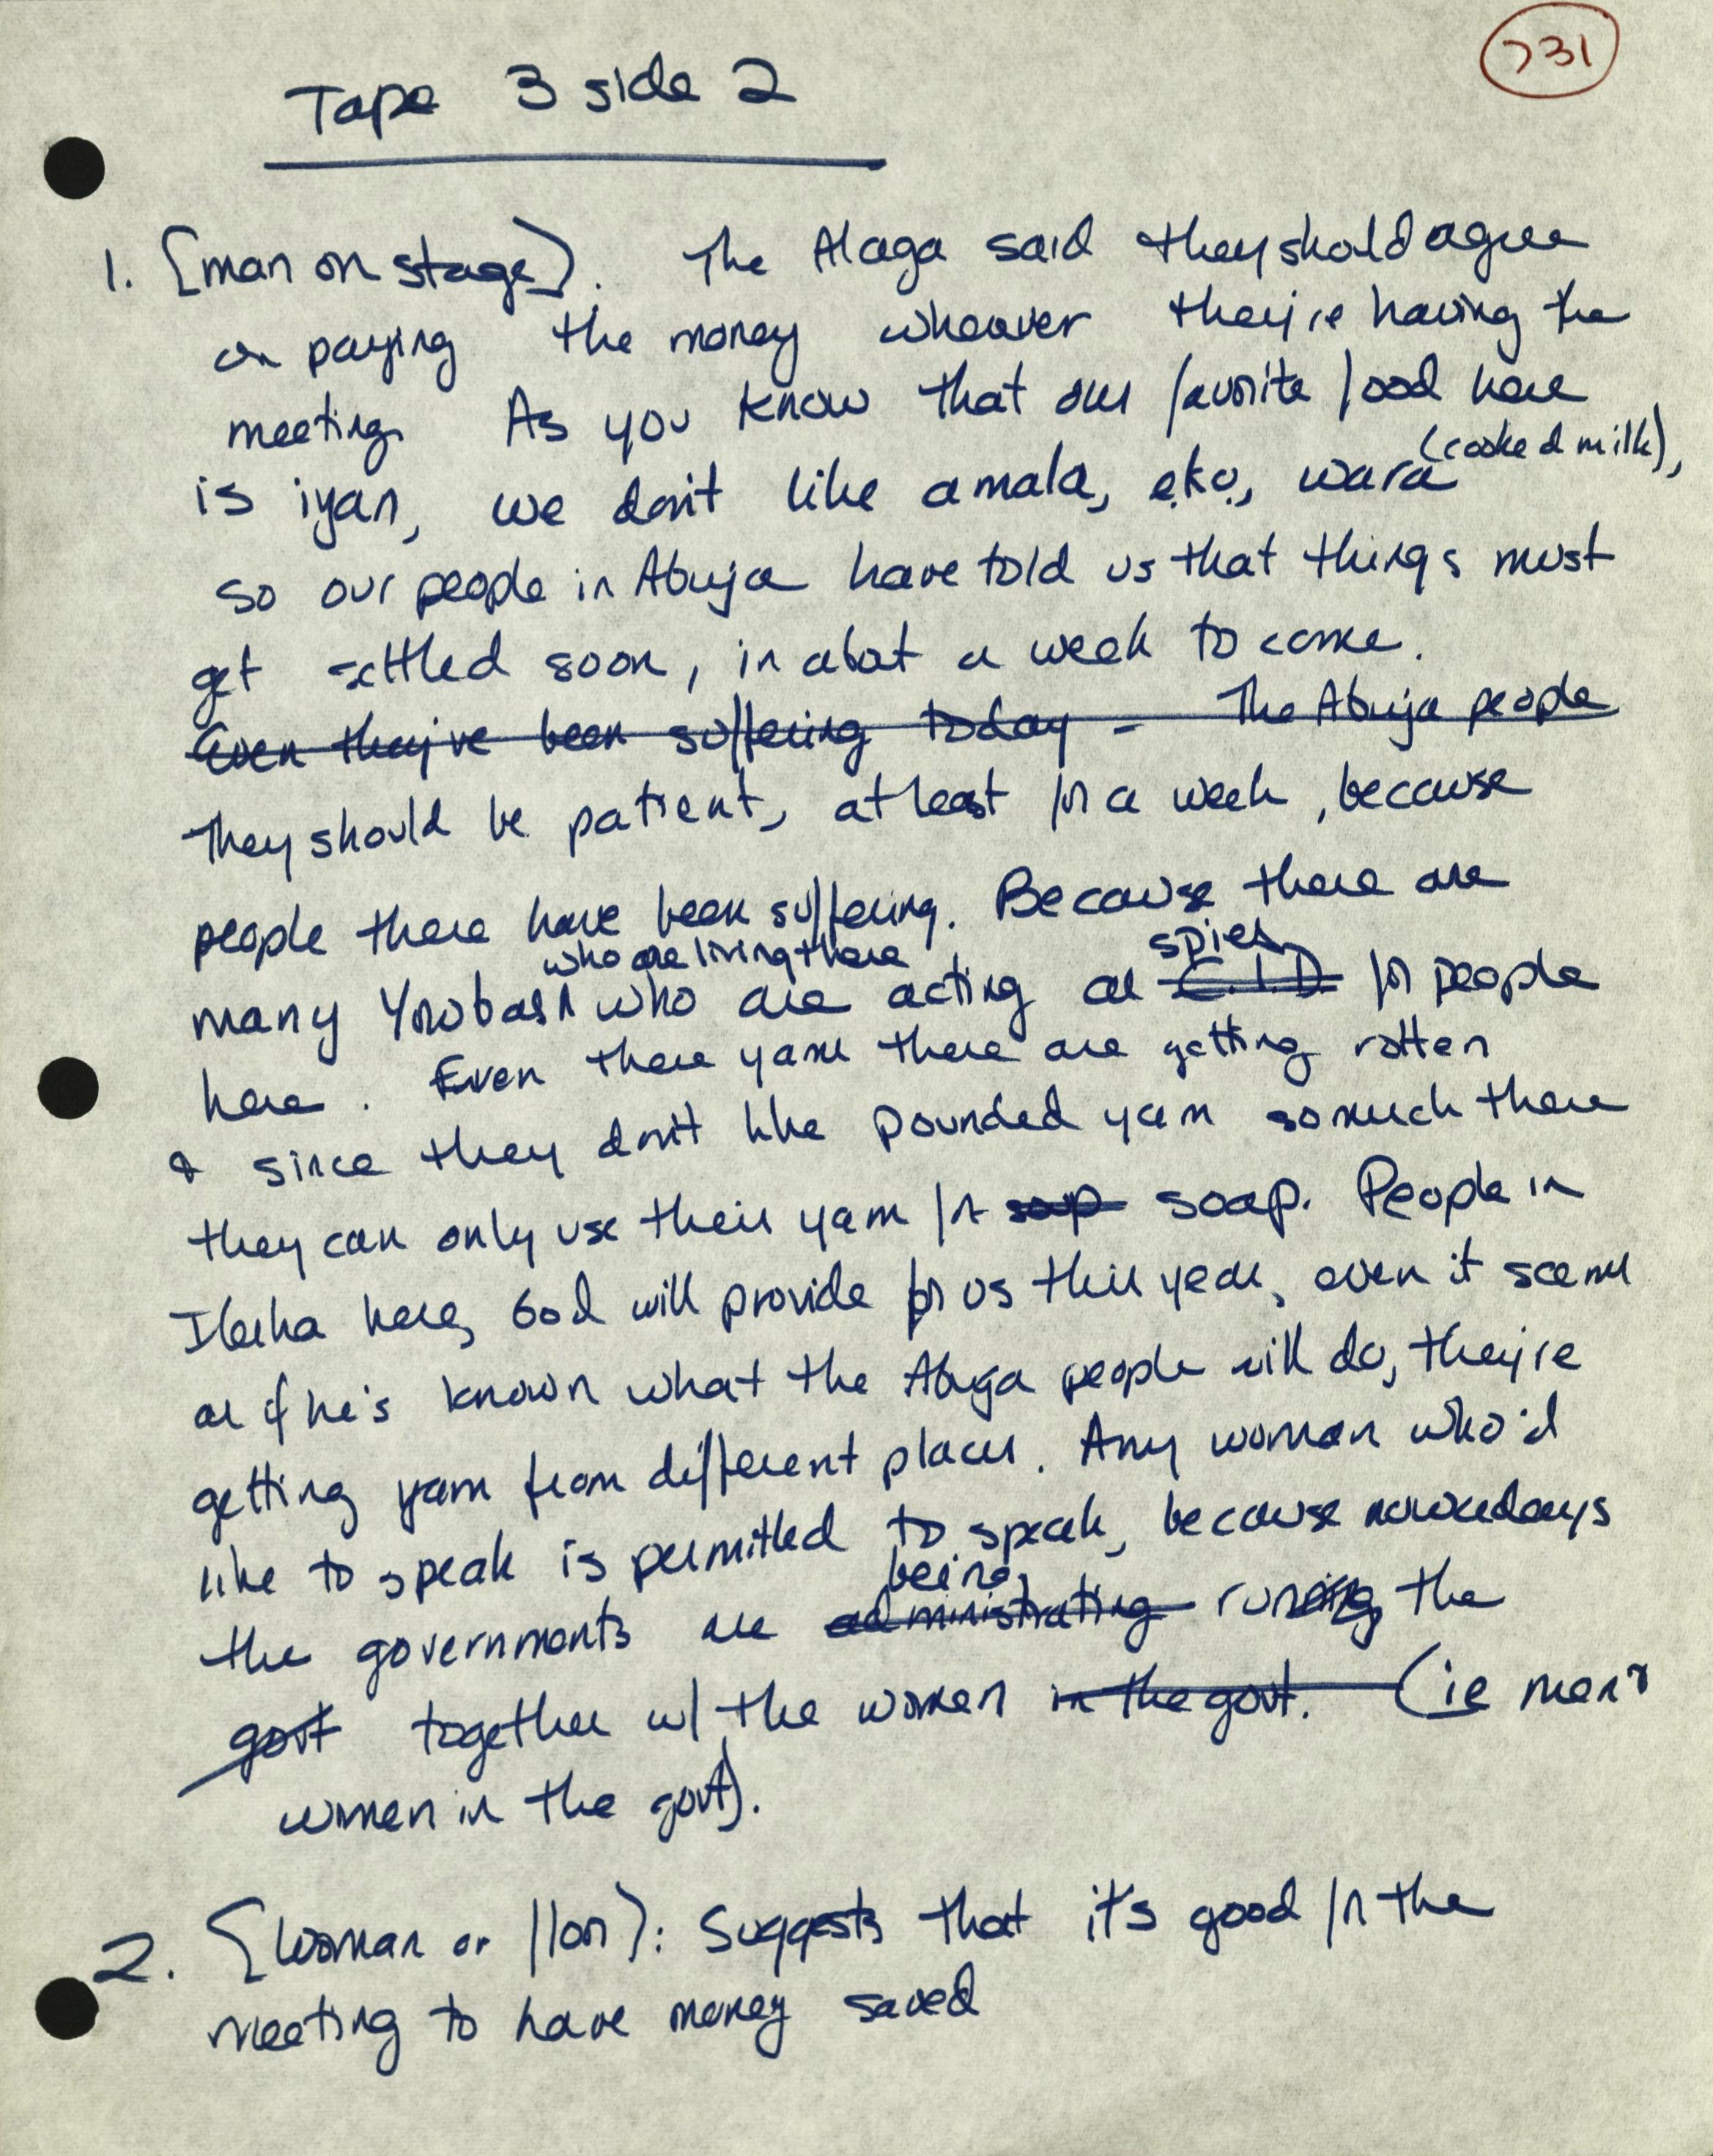 731
Tape 3 side 2
1. [man on stage]. The Alaga said they should agree
on paying the money whenever they're having the
meeting. As you know that our favorite food here
(cooked milk),
is iyan, we don't like amala, ẹkọ, wara
so our people in Abuja have told us that things must
get settled soon, in about a week to come.
Even they've been suffering today - The Abuja people
They should be patient, at least for a week, because
people there have been suffering. Because there are
who are living there spies
many Yorubas ^ who are acting as C.I.D. for people
here. Even there yams there are getting rotten
& since they don't like pounded yam so much there
they can only use their yam for soup soap. People in
here, God will provide for us this year, even it seems
as if he's known what the Abuja people will do, they're
getting yam from different places. Any woman who'd
like to speak is permitted to speak, because nowadays
being
the governments are administrating running the
govt together w/ the women in the govt. (ie men &
women in the govt).
2. [Woman on floor]: Suggests that it's good for the
meeting to have money saved